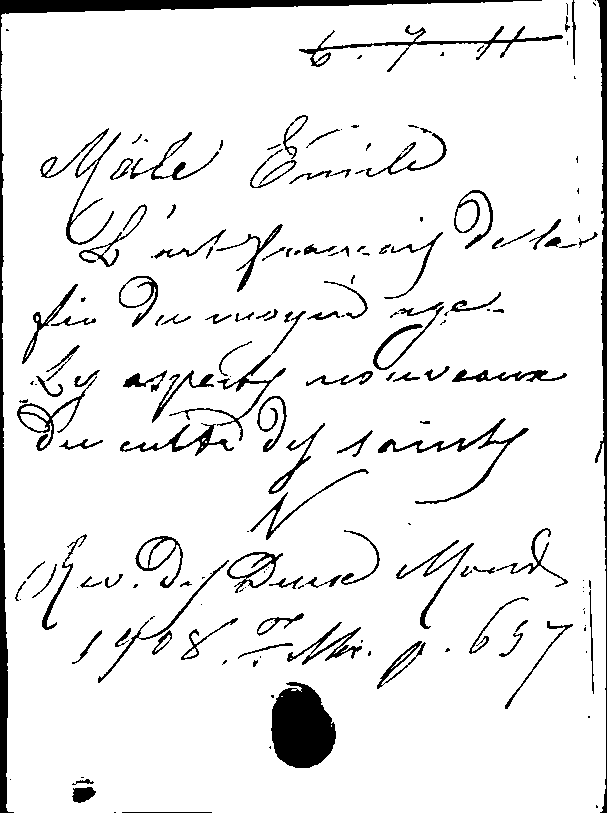 6.7.11
Mâle Émile
L'art français de la
fin du moyen age.
Les aspects nouveaux
du culte des saints
V
Rev. des Deux Mondes
1908. p. 657